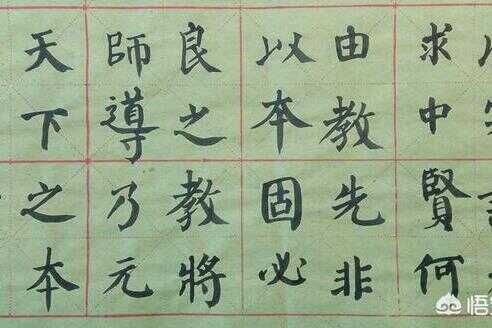 求中賢何
由教先非
以本固必
良之教將
師導乃元
天下之本
悟